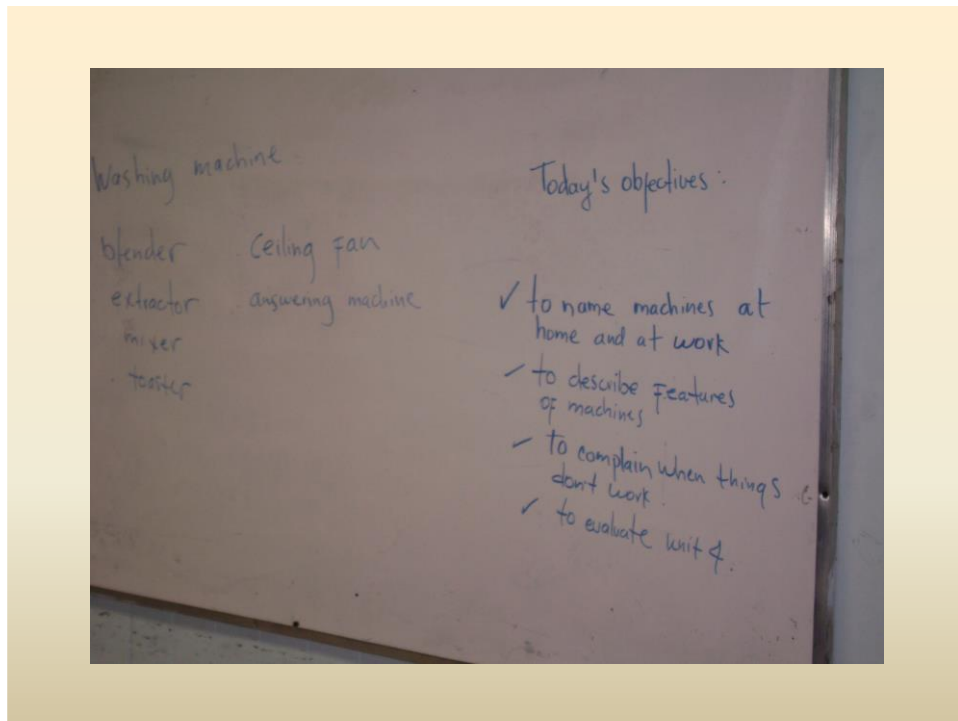 Washing machine
blender
extractor
mixer
toaster
Ceiling Fan
answering machine
Today's objectives:
✓ to name machines at
home and at work
✓ to describe Features
OF machines
✓ to complain when things
don't work.
✓ to evaluate unit 4.